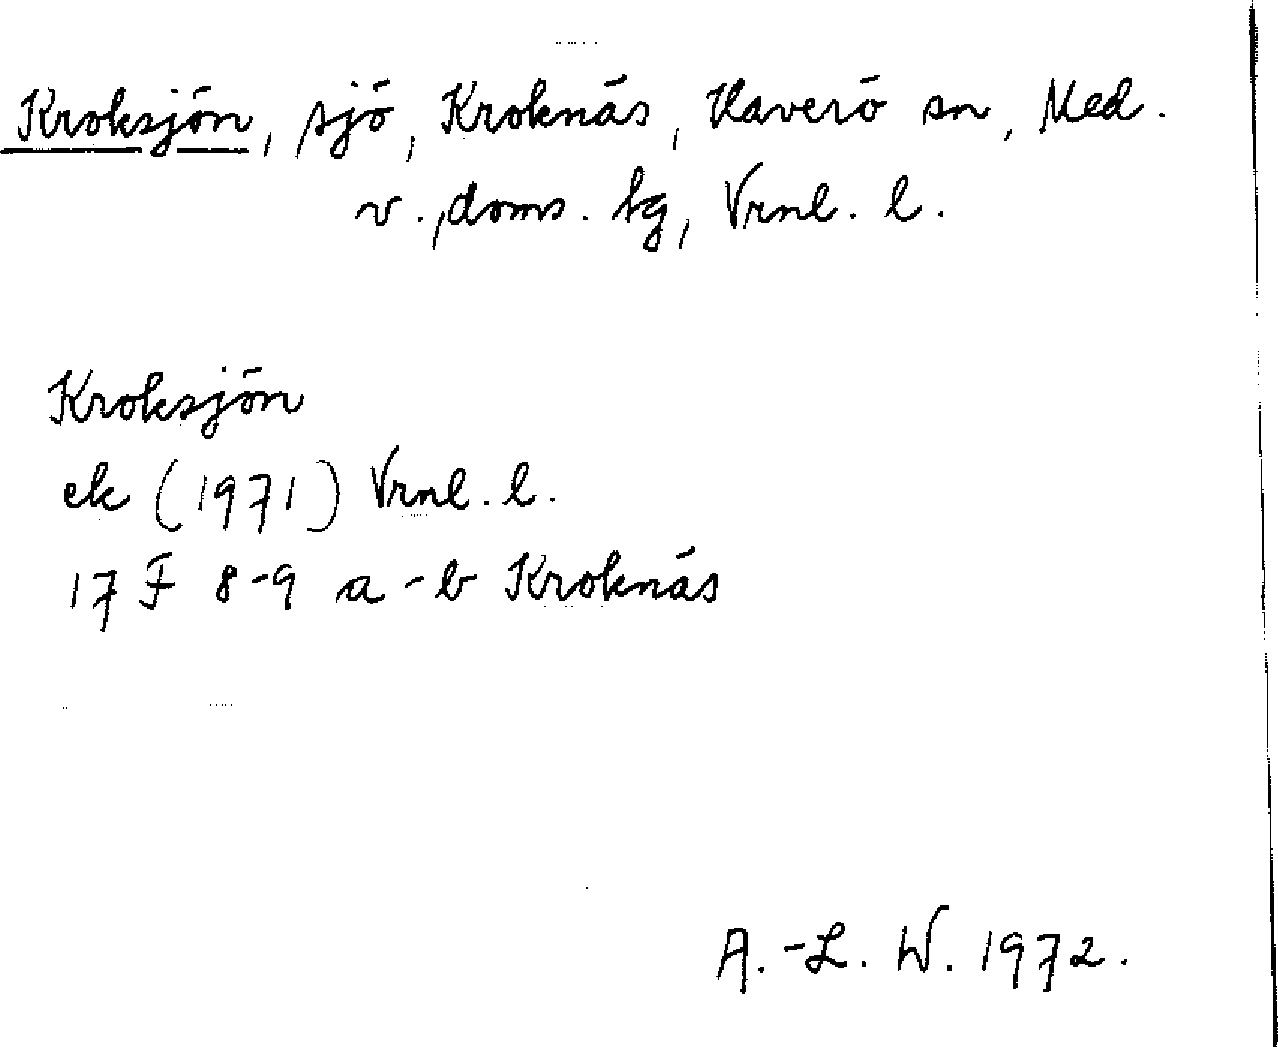 Kroksjön, sjö, Kroknäs, Haverö sn, Med.
v., doms. tg, Vrnl. l.
Kroksjön
ek (1971) Vrnl. l.
17 F 8-9 a-b Kroknäs
A.-L. W. 1972.